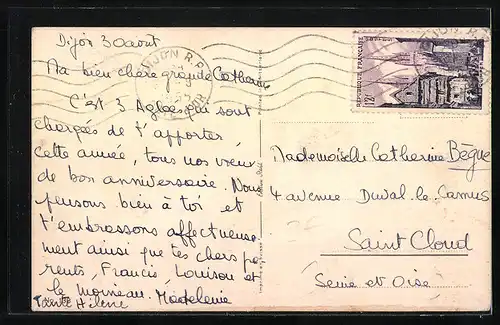 Dijon 30 aout
Ma bien chère grande Catherine
C'est 3 Agloes qui sont
chargés de t'apporter
cette année, tous nos vœux
de bon anniversaire. Nous
pensons bien à toi et
t'embrassons affectueuse
ment ainsi que tes chers pa
rents, Francis, Louison et
le Moineau. Madeleine
Tante Hélène
DIJON R.P.
CÔTE D'OR
REPUBLIQUE FRANÇAISE
12F
Mademoiselle Catherine Bègue
4 avenue Duval-le-Camus
Saint Cloud
Seine et Oise